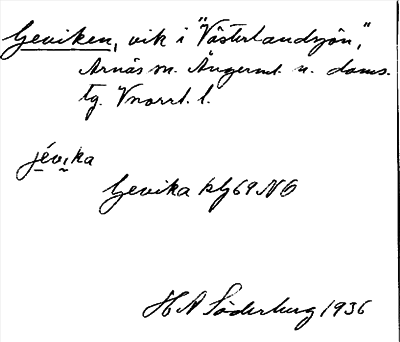 Geviken, vik i "Västerlandsjön",
Arnäs sn. Ångerml. n. doms.
tg. Vnorrl. l.
jévika
Gevika klg 69 NO
H A Söderberg 1936